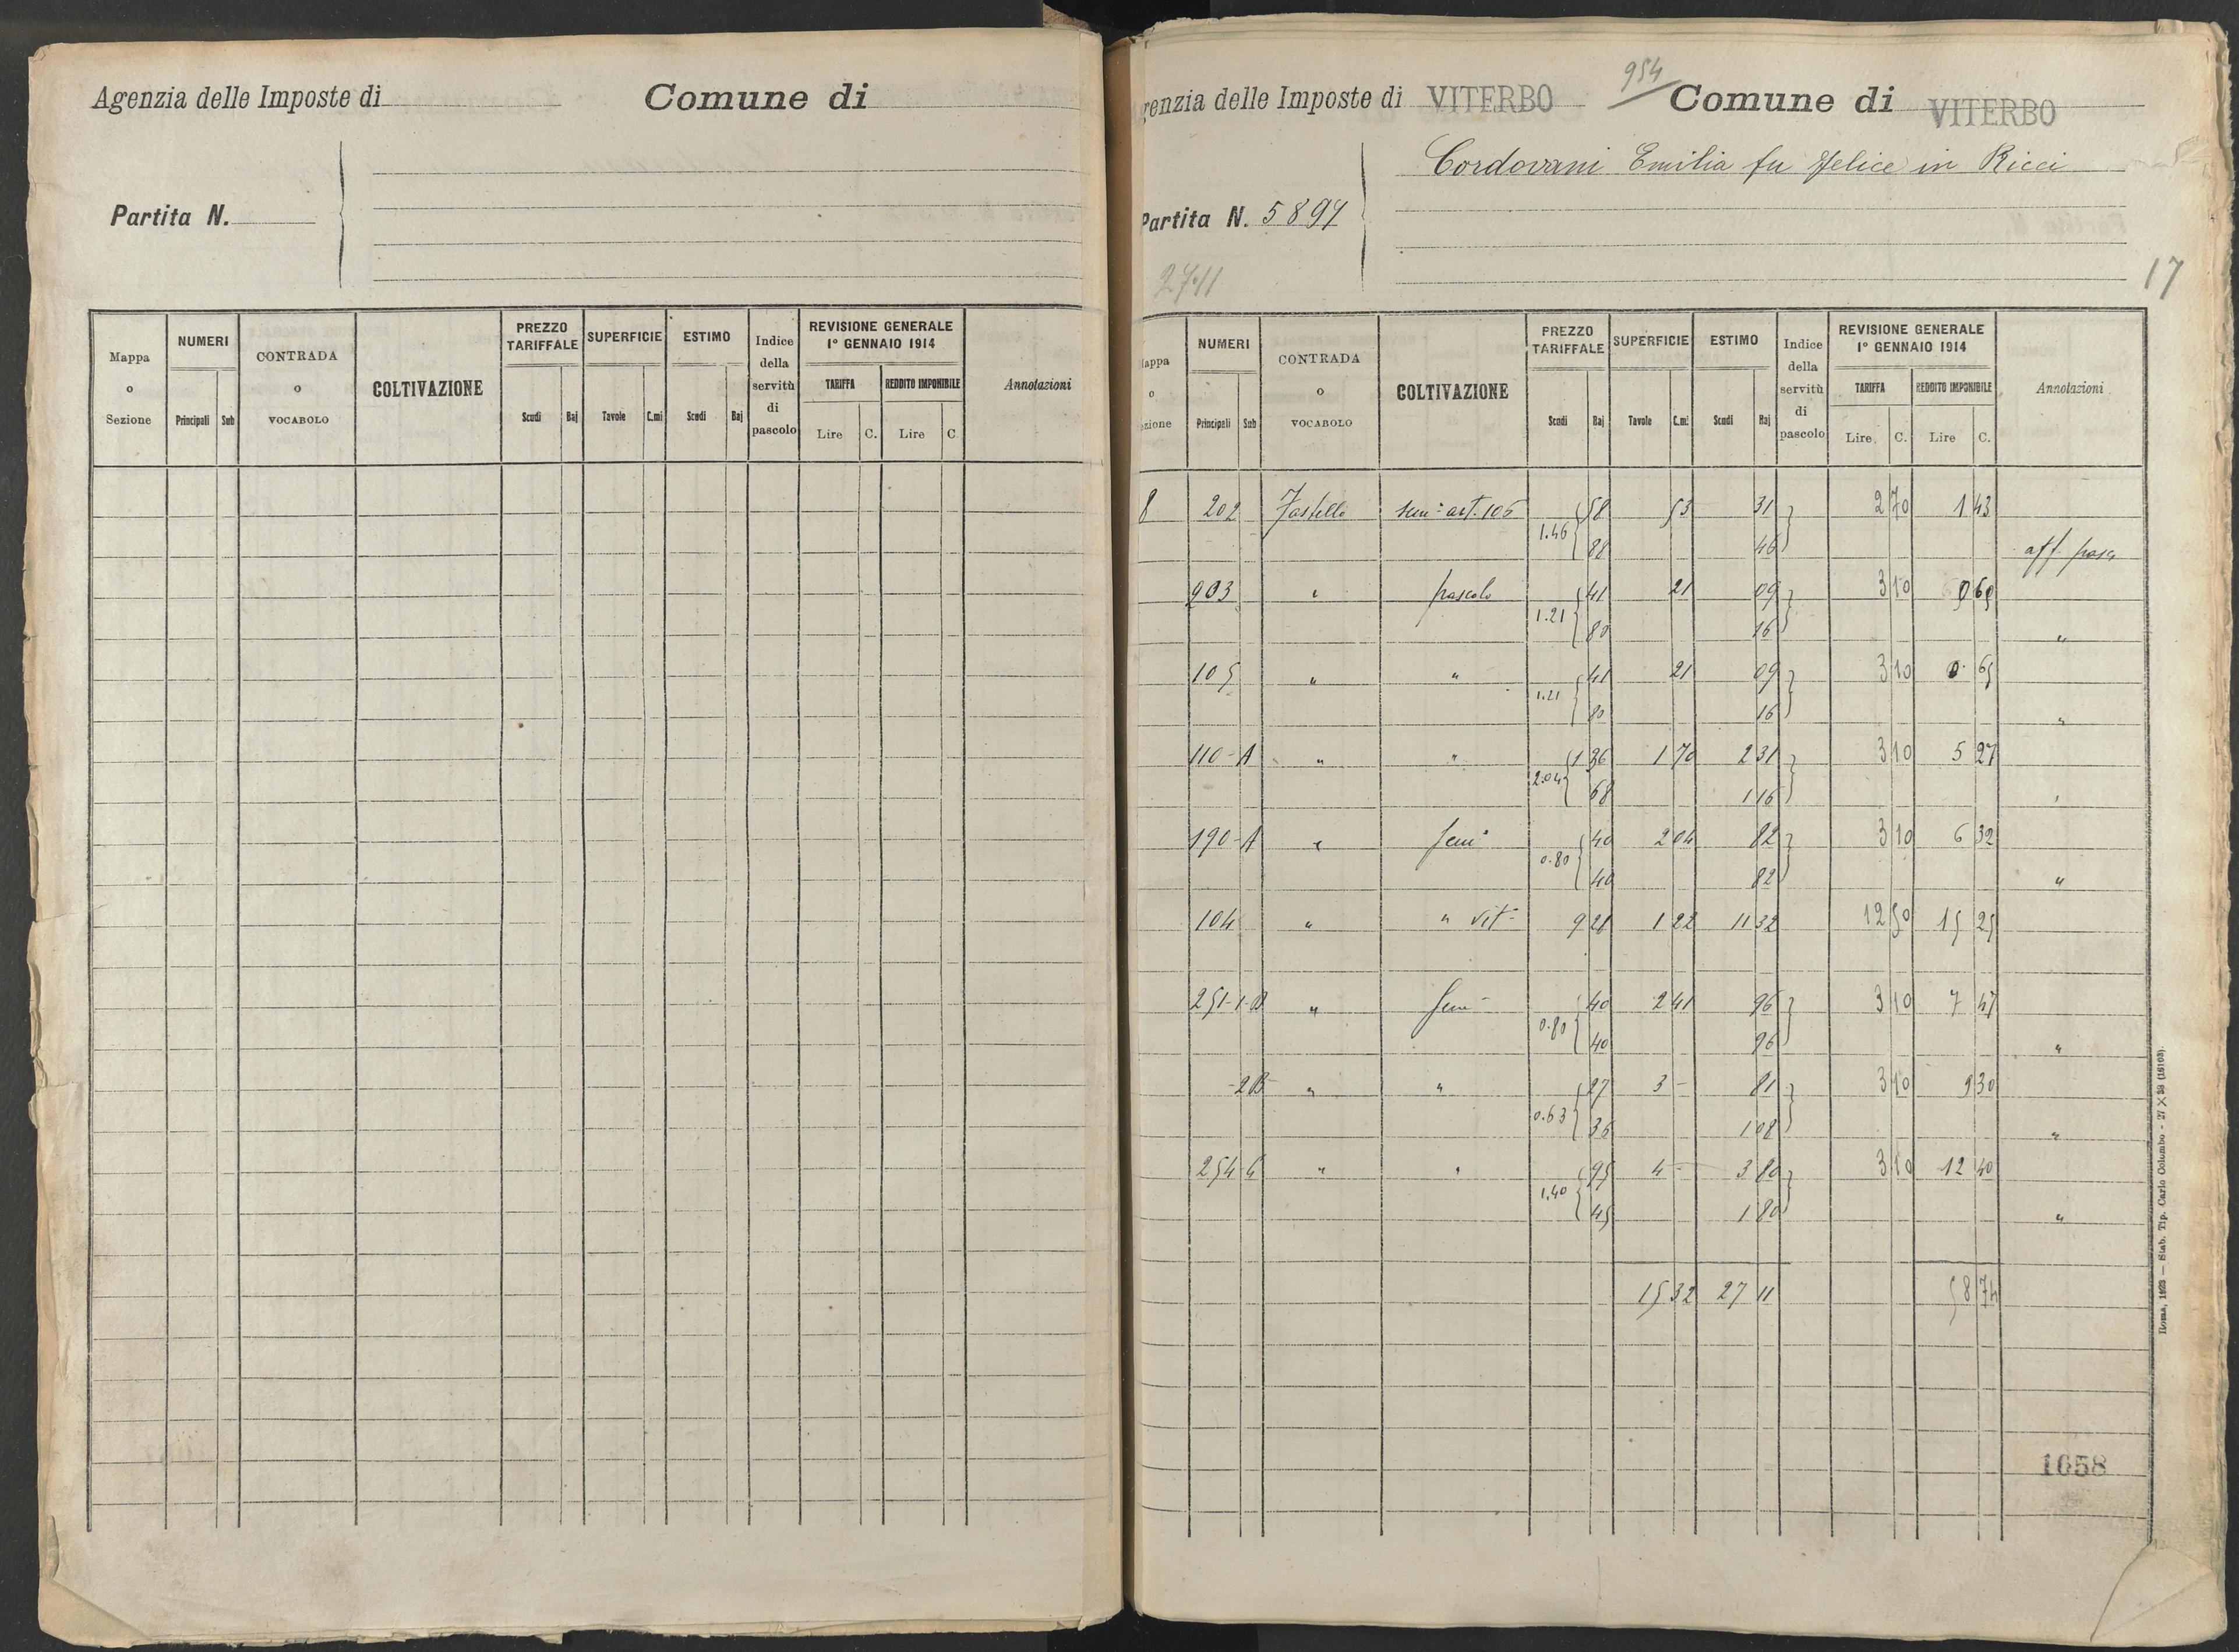 Agenzia delle Imposte di Comune di
Partita N.
Mappa o Sezione NUMERI Principali Sub CONTRADA o VOCABOLO COLTIVAZIONE PREZZO TARIFFALE Scudi Baj SUPERFICIE Tavole C.mi ESTIMO Scudi Baj Indice della servitù di pascolo REVISIONE GENERALE 1º GENNAIO 1914 TARIFFA Lire C. REDDITO IMPONIBILE Lire C. Annotazioni
954
genzia delle Imposte di VITERBO Comune di VITERBO
Cordovani Emilia fu Felice in Ricci
Partita N. 5897
2711
17
Mappa o Sezione NUMERI Principali Sub CONTRADA o VOCABOLO COLTIVAZIONE PREZZO TARIFFALE Scudi Baj SUPERFICIE Tavole C.mi ESTIMO Scudi Baj Indice della servitù di pascolo REVISIONE GENERALE 1º GENNAIO 1914 TARIFFA Lire C. REDDITO IMPONIBILE Lire C. Annotazioni
8 202 art. 106 58 53 31 2 70 1 43
1.46 88 46 aff pasc
903 " pascolo 41 21 09 3 10 0 65
1.21 80 16 "
105 " " 41 21 09 3 10 0 65
1.21 80 16 "
110-A " " 1 36 1 70 2 31 3 10 5 27
2.04 68 1 16 "
190-A " Sem 40 2 04 82 3 10 6 32
0.80 40 82 "
104 " " vit 9 28 1 22 11 32 12 50 15 25
251-1-B " Sem 40 2 41 96 3 10 7 47
0.80 40 96 "
-2B " " 27 3 - 81 3 10 9 30
0.63 36 1 08 "
254 " " 95 4 - 3 80 3 10 12 40
1.40 45 1 80 "
15 32 27 11 58 74
1658
Roma, 1923 — Stab. Tip. Carlo Colombo - 27 X 38 (16103).